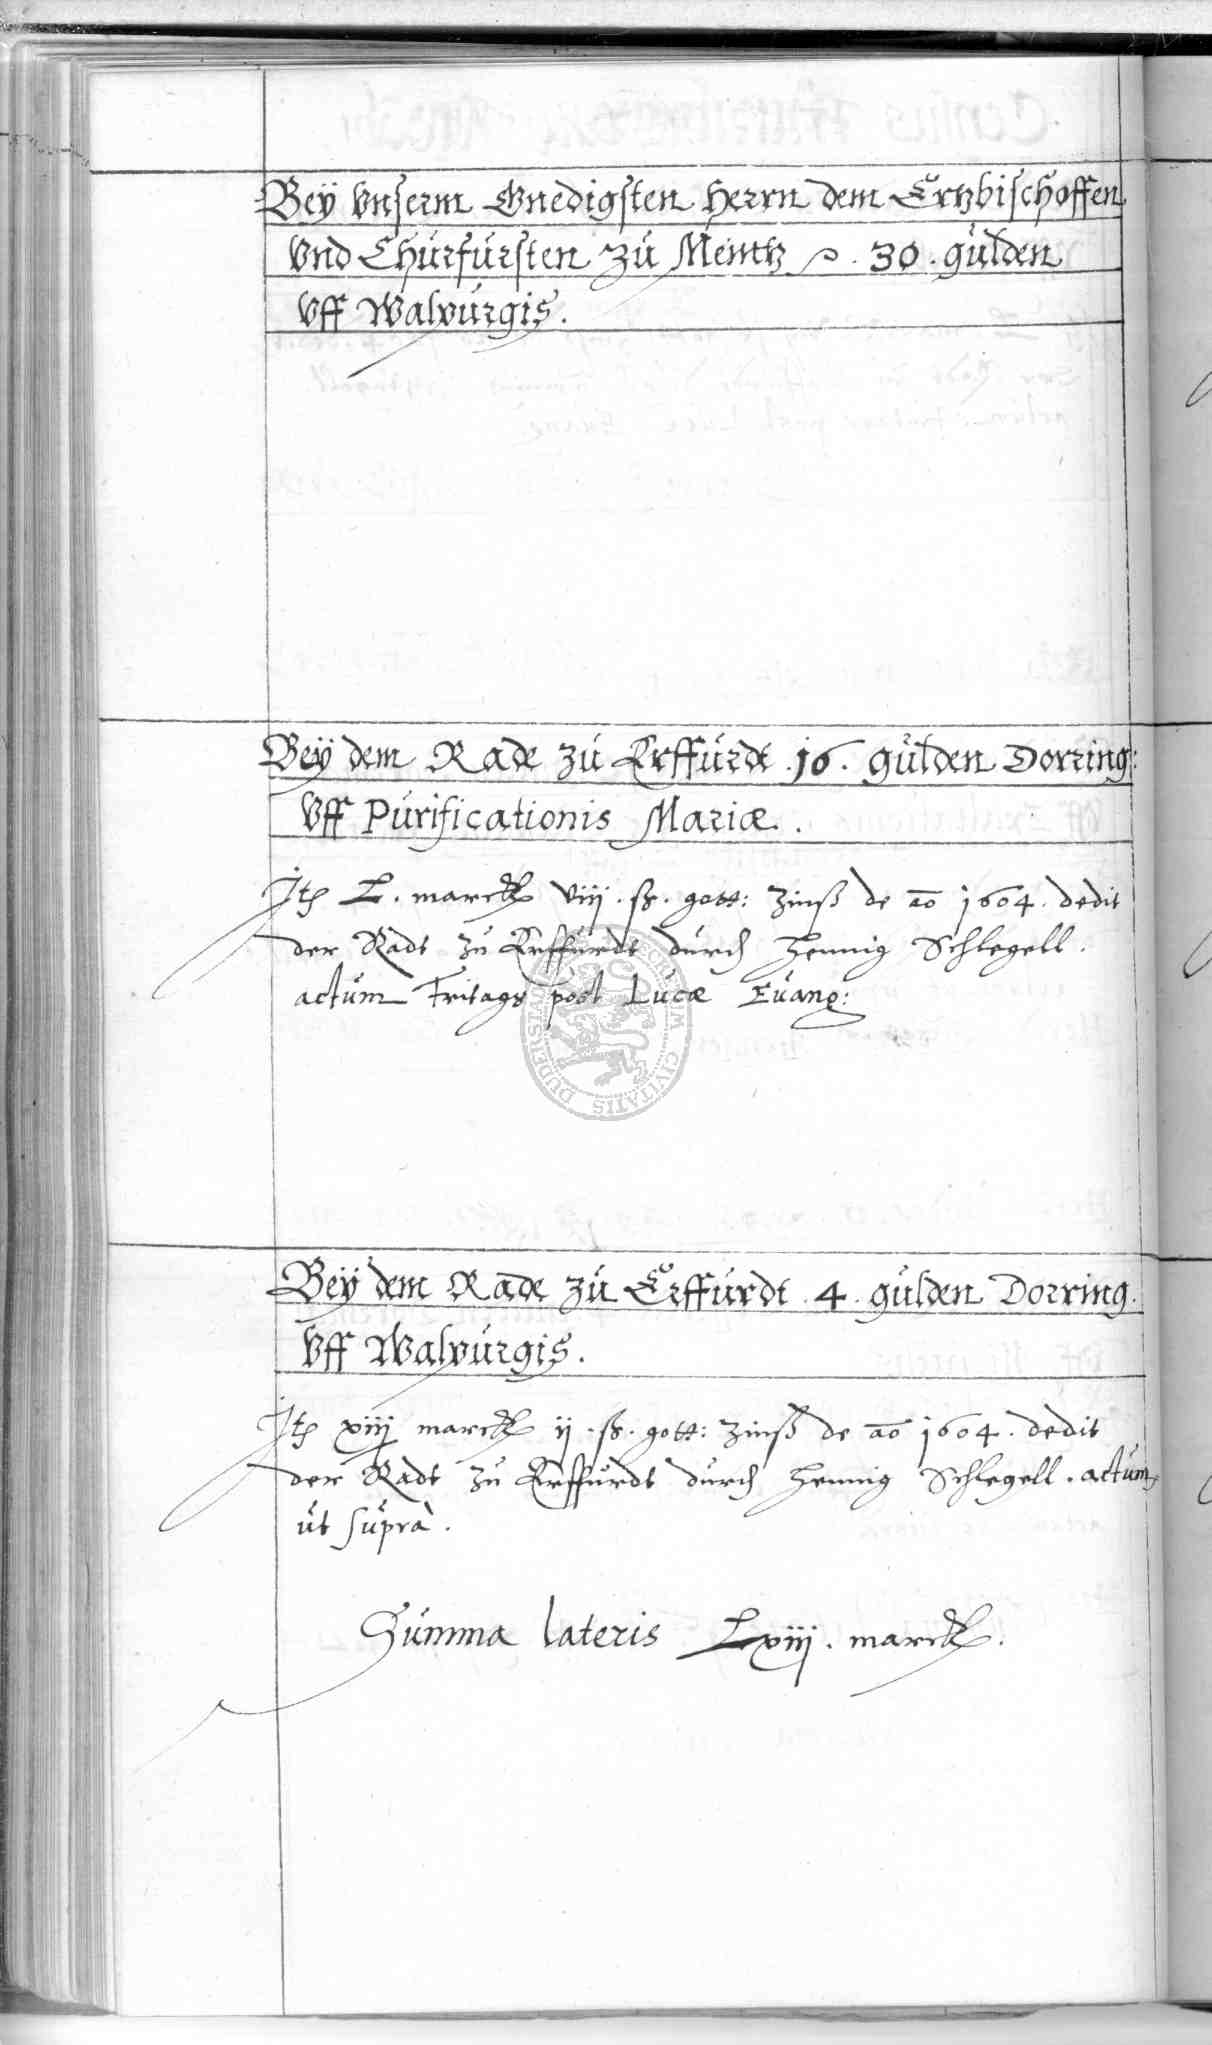 Beÿ Vnserm Gnedigsten Herrn dem Ertzbischoffen
Vnd Churfursten zu Meintz p. 30. gulden
Vff Walpurgis.
Beÿ dem Rade zu Erffurdt .16. gulden Dorring:
Vff Purificationis Mariæ.
Itē L. marck viij. ß. gott: Zinß de ao 1604. dedit
der Radt zu Erffurdt durch Hennig Schlegell.
actum Fritags post Lucæ Euang:
Beÿ dem Rade zu Erffurdt .4. gulden Dorring.
Vff Walpurgis.
Itē xiij marck ij .ß. gott: Zinß de ao 1604. dedit
der Radt zu Erffurdt durch Hennig Schlegell. actum
ut suprà.
Summa lateris Lxiij. marck.
CIVITATIS DUDERS